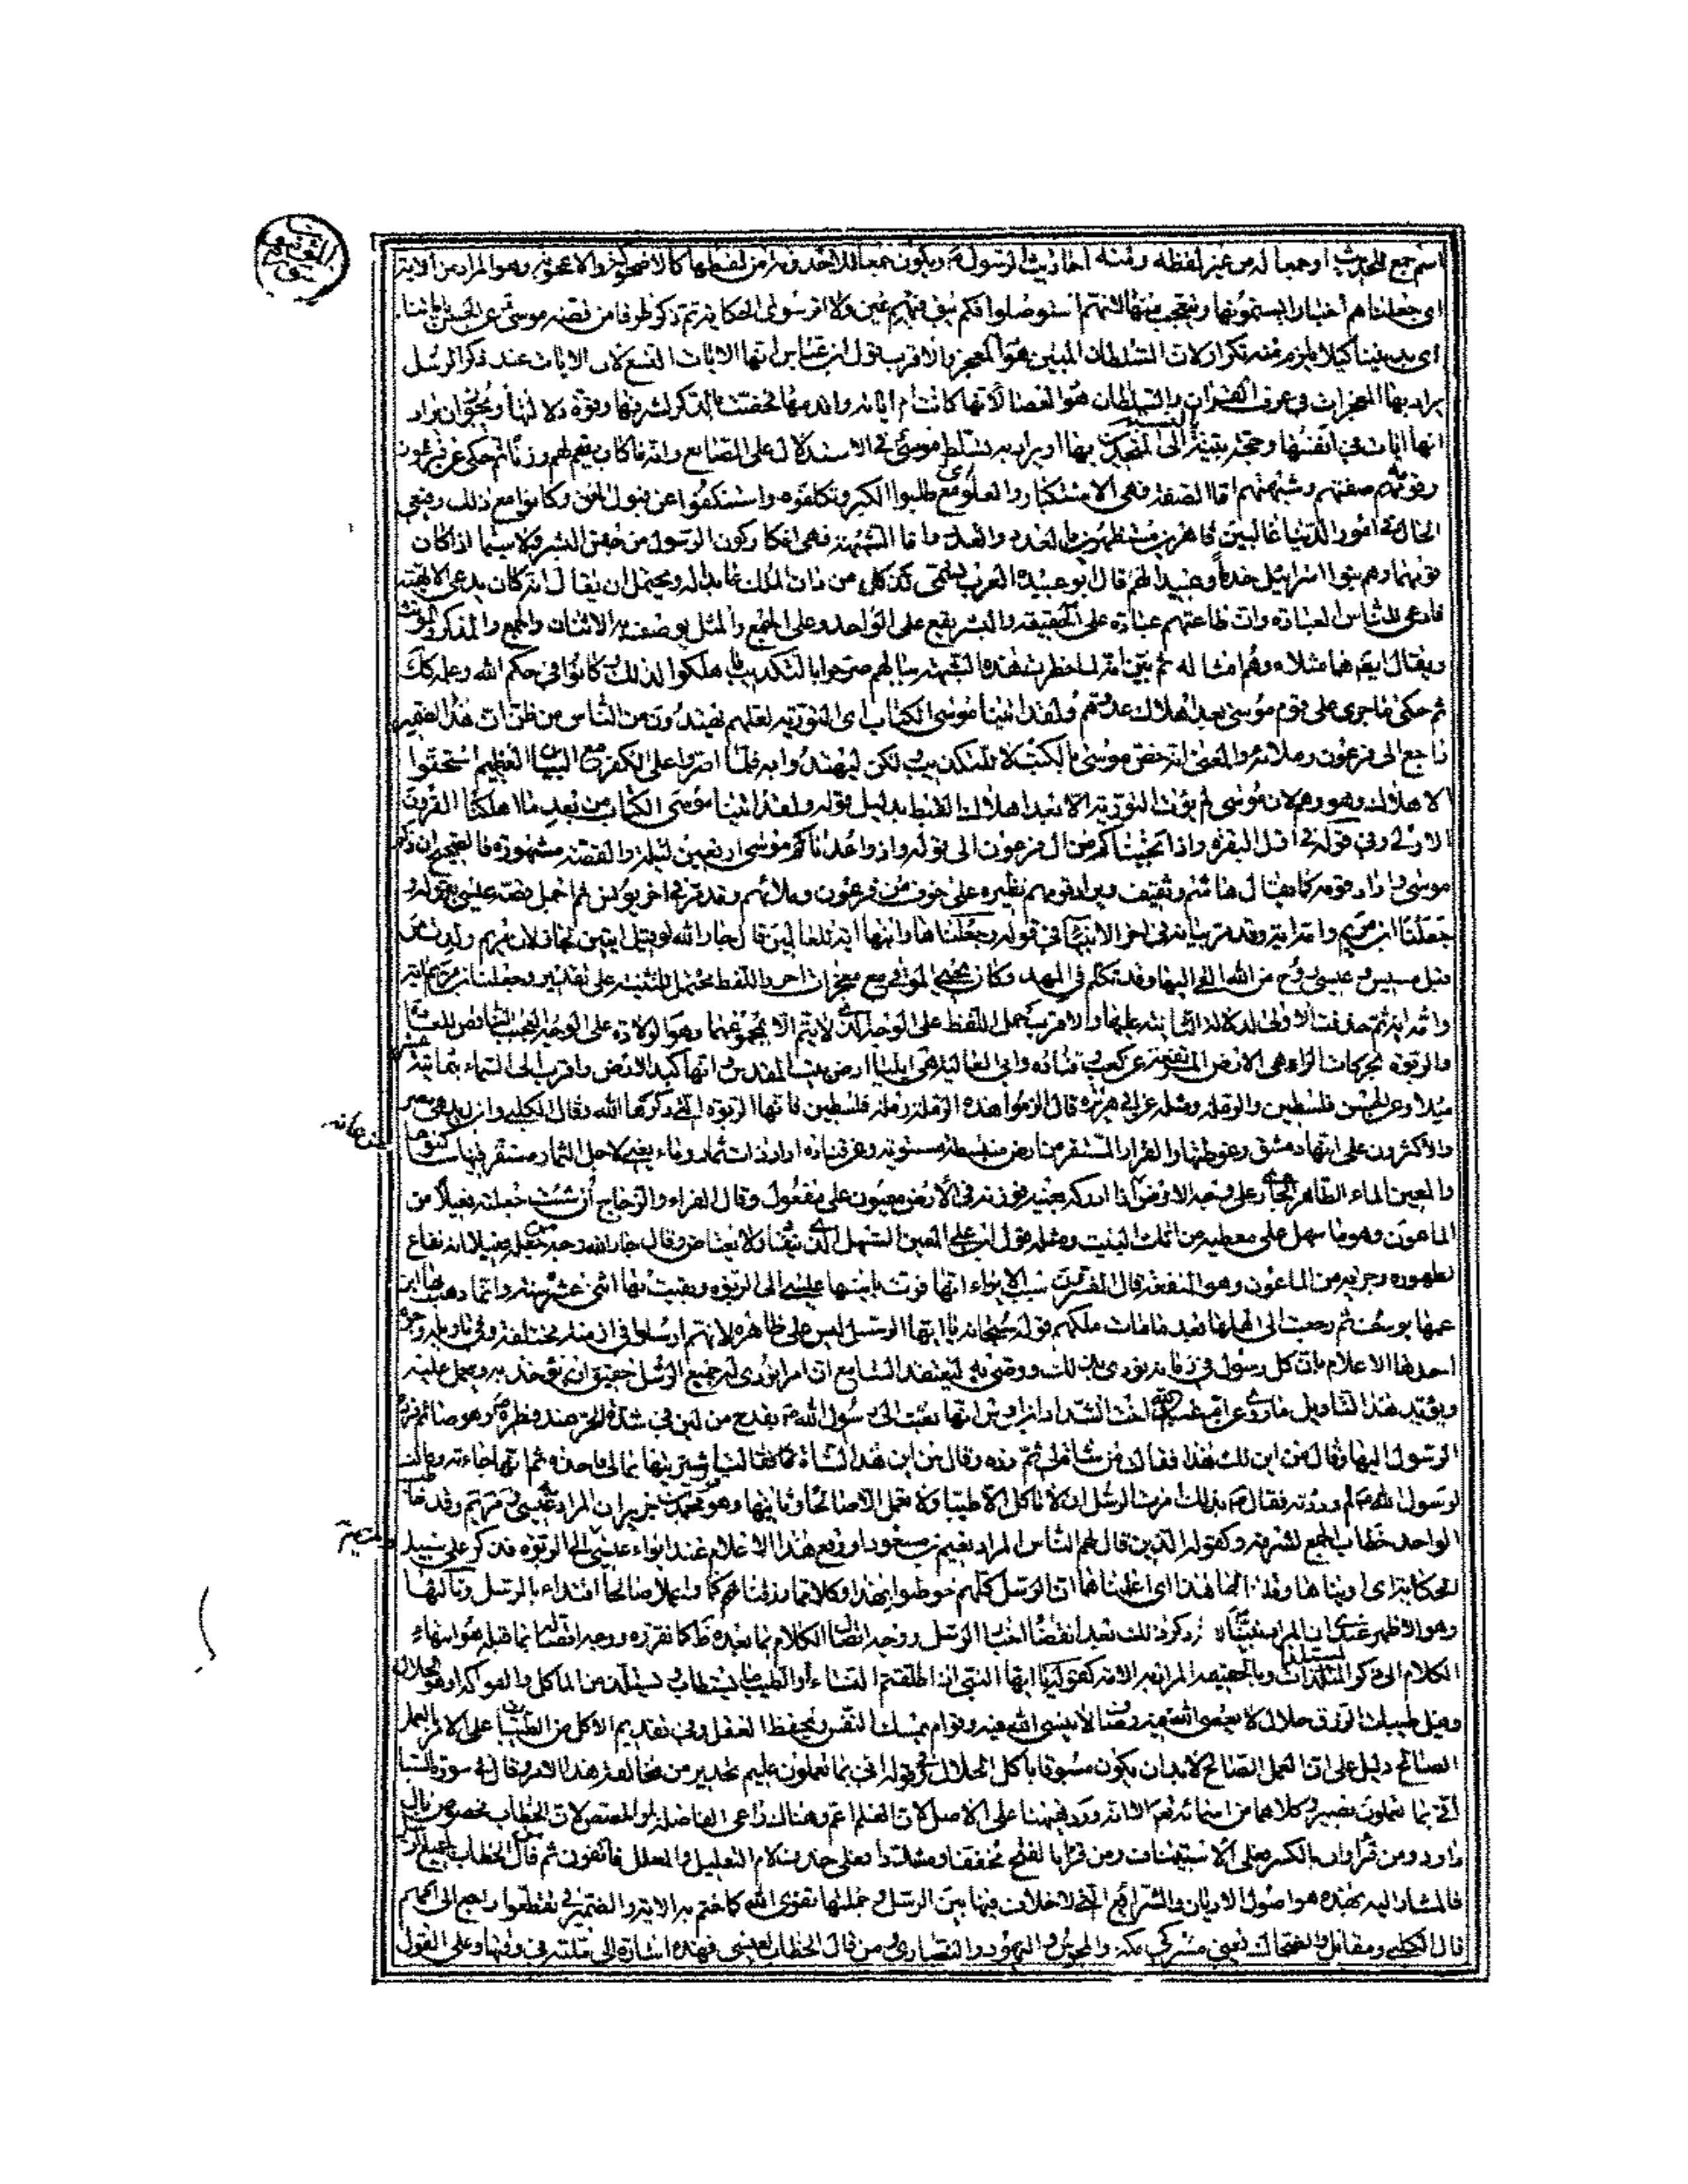 اسم جمع للحديث او جمعا له من غير لفظه ومنه احاديث الرسول ويكون جمعا للاحدوثة من لفظها كالاضحوكة والاعجوبة وهو المراد من الاية
اى جعلناهم اخبارا يستمعونها ويتعجب منها لانهم استوصلوا فلم يبق فيهم عين ولا اثر سوى الحكاية ثم ذكر طرفا من قصة موسى عن الحسن باياتنا
اى بديننا كيلا يلزم منه تكرار لان السلطان المبين هو المعجز والاقرب قول ابن عباس انها الايات التسع لان الايات عند ذكر الرسل
يراد بها المعجزات فى عرف القران والسلطان هو العصا لانها كانت ام اياته واقدمها فخصت بالذكر لشرفها وقوة دلالتها ويجوز ان يراد
انها ايات فى انفسها وحجة بينة بالنسبة الى المتحدين بها او يراد به تسلط موسى فى الاستدلال على الصانع وانه ما كان يقيم لهم وزنا ثم حكى عن فرعون
وقومه صفتهم وشبهتهم اما الصفة فهى الاستكبار والعلو اى طلبوا الكبر وتكلفوه واستنكفوا عن قبول الحق وكانوا مع ذلك رفيعى
الحال فى امور الدنيا غالبين قاهرين مستظهرين بالعدد والعدد واما الشبهة فهى انكار كون الرسول من جنس البشر ولا سيما اذا كان
قومهما وهم بنوا اسرائيل خدما وعبيدا لهم قال ابو عبيدة العرب تسمى كل من دان الملك عابدا له ويحتمل ان يقال انه كان يدعى الالهية
فادعى للناس العبادة وان طاعتهم عبادة على الحقيقة والبشر يقع على الواحد وعلى الجمع والمثل يوصف به الاثنان والجمع والمذكر والمؤنث
ويقال ايضا هما مثلاه وهم امثاله ثم بين انه لما خطرت هذه الشبهة ببالهم صرحوا بالتكذيب فاهلكوا لذلك كانوا فى حكم الله وعلمه كذلك
ثم حكى ما جرى على قوم موسى بعد اهلاك عدوهم ولقد اتينا موسى الكتاب اى التورية لعلهم يهتدون ومن الناس من ظن ان هذا الضمير
راجع الى فرعون وملائه والمعنى انه خص موسى بالكتب لا للتكذيب لكن ليهتدوا به فلما اصروا على الكفر مع البيان العظيم استحقوا
الاهلاك وهو وهم لان موسى لم يؤت التورية الا بعد اهلاك القبط بدليل قوله ولقد اتينا موسى الكتاب من بعد ما اهلكنا القرون
الاولى وفى قوله فى اول البقرة واذ انجيناكم من ال فرعون الى قوله واذ واعدناكم موسى اربعين ليلة والقصة مشهورة فالصحيح ان ذكر
موسى واراد قومه كما يقال هاشم وثقيف ويراد قومهم نظيره على خوف من فرعون وملائهم وقد مر فى اخر يونس ثم اجمل قصة عيسى بقوله و
جعلنا ابن مريم وامه اية وقد مر بيانه فى اخر الانبياء فى قوله وجعلناها وابنها اية للعالمين قال جار الله لو قيل ايتين لجاز لان مريم ولدت من
قبل مسيس وعيسى روح من الله القى اليها وقد تكلم فى المهد وكان يحيى الموتى مع معجزات اخر واللفظ محتمل للتثنية على تقدير وجعلنا ابن مريم اية
وامه اية ثم حذفت الاولى لدلالة الثانية عليها والاقرب حمل اللفظ على الوجه الذى لا يتم الا بمجموعهما وهو الولادة على الوجه العجيب الناقض للعادة
والربوة بحركات الراء هى الارض المرتفعة عن كعب وقتادة وابى العالية هى ايليا ارض بيت المقدس وانها كبد الارض واقرب الى السماء بثمانية عشر
ميلا وعن الحسن فلسطين والرملة ومثله عن ابى هريرة قال الزموا هذه الرملة رملة فلسطين فانها الربوة التى ذكرها الله وقال الكلبى وابن زيد هى مصر
والاكثرون على انها دمشق وغوطتها والقرار المستقر من ارض منبسطة مستوية وعن قتادة اراد ذات ثمار وماء يعنى لاجل الثمار مستقر فيها ساكنوها
والمعين الماء الظاهر الجارى على وجه الارض اذا ادركه بعينه فوزنه فى الارض معيون على مفعول وقال الفراء والزجاج ان شئت جعلته فعيلا من
الماعون وهو ما سهل على معطيه من اثاث البيت ومثله قول ابى على المعين السهل الذى ينقاد ولا يعتاض وقال جار الله وجه من جعله فعيلا انه نفاع
لظهوره وجريه من الماعون وهو المنفعة قال المفسرون سبب الايواء انها فرت بابنها عيسى الى الربوة وبقيت بها اثنى عشر سنة وانما ذهب بها ابن
عمها يوسف ثم رجعت الى اهلها بعد ما مات ملكهم قوله سبحانه يا ايها الرسل ليس على ظاهره لانهم ارسلوا فى ازمنة مختلفة وفى تاويله وجوه
احدها الاعلام بان كل رسول فى زمانه نودى بذلك ووصى به ليعتقد السامع ان امرا نودى له جميع الرسل حقيق ان يؤخذ به ويعمل عليه
ويؤيد هذا التاويل ما روى عن ام عبد الله اخت شداد بن اوس انها بعثت الى رسول الله بقدح من لبن فى شدة الحر عند فطره وهو صائم فرد
الرسول اليها وقال من اين لك هذا فقالت من شاة لى ثم رده وقال من اين هذه الشاة فقالت اشتريتها بمالى فاخذه ثم انها جاءته وقالت
لرسول الله لم رددته فقال بذلك امرت الرسل ان لا تاكل الا طيبا ولا تعمل الا صالحا وثانيها وهو قول محمد بن جرير ان المراد عيسى بن مريم وقد خاطب
الواحد خطاب الجمع لشرفه وكقوله الذين قال لهم الناس المراد نعيم بن مسعود او وقع هذا الاعلام عند ايواء عيسى الى الربوة فذكر على سبيل
الحكاية اى اويناهما وقلنا لهما هذا اى اعلمناهما ان الرسل كلهم خوطبوا بهذا وكلا مما رزقناكما واعملا صالحا اقتداء بالرسل وثالثها
وهو الاظهر عندى ان المراد نبينا ذكر ذلك بعد انقضاء اخبار الرسل ووجه اتصال الكلام بما بعده ظاهر كما نقرره ووجه اتصاله بما قبله هو انتهاء
الكلام الى ذكر المستلذات وبالحقيقة المراد به الامة كقوله يا ايها النبى اذا طلقتم النساء والطيب ما يستطاب ويستلذ من الماكل والفواكه او هو الحلال
وقيل طيبات الرزق حلال لا يعصى الله فيه وصاف لا ينسى الله فيه وقوام يمسك النفس ويحفظ العقل وفى تقديم الاكل من الطيبات على الامر بالعمل
الصالح دليل على ان العمل الصالح لا بد ان يكون مسبوقا باكل الحلال وفى قوله انى بما تعملون عليم تحذير من مخالفة هذا الامر وقال فى سورة سبا
انى بما تعملون بصير وكلاهما من اسمائه تعالى الا انه ورد ههنا على الاصل لان العلم اعم وهنالك راعى الفاصلة او لان الخطاب مخصوص بال
داود ومن قرا وان بالكسر فعلى الاستيناف ومن قرا بالفتح مخففا ومشددا فعلى حذف لام التعليل والمعلل فاتقون ثم قال الخطاب لجميع الرسل
فالمشار اليه بهذه هو اصول الاديان والشرائع التى لا خلاف فيها بين الرسل ومن جملتها تقوى الله كما ختم به الاية والضمير فى فتقطعوا راجع الى اممهم
قال الكلبى ومقاتل والضحاك يعنى مشركى مكة والمجوس واليهود والنصارى ومن قال الخطاب لعيسى فهذه اشارة الى ملته فى وقتها وعلى القول